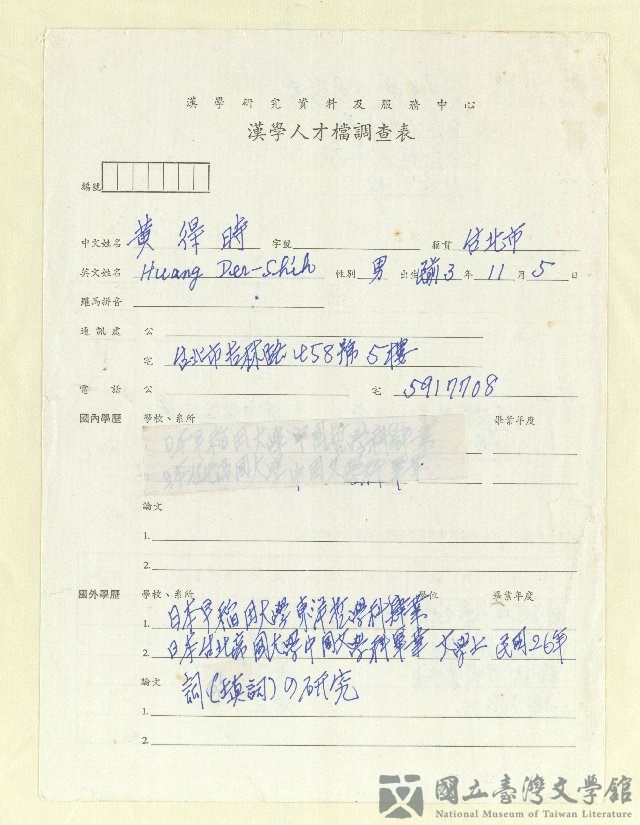 漢學研究資料及服務中心
漢學人才檔調查表
編號
中文姓名 黃得時 字號 籍貫 台北市
英文姓名 Huang Der-Shih 性別 男 出生 前 3 年 11 月 5 日
羅馬拼音
通訊處 公
宅 台北市吉林路 458號 5樓
電話 公 宅 5917708
國內學歷 學校、系所 畢業年度
日本早稻田大學中國哲學科
日本台北帝國大學中國文學科畢業
論文
1.
2.
國外學歷 學校、系所 學位 畢業年度
1. 日本早稻田大學東洋哲學科
2. 日本台北帝國大學中國文學科畢業 文學士 民國26年
論文 詞(填詞)の研究
1.
2.
國立臺灣文學館
National Museum of Taiwan Literature